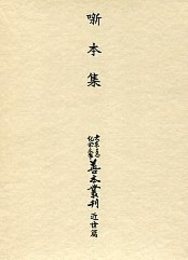 噺本集
大東急
記念文庫
善本叢刊 近世篇